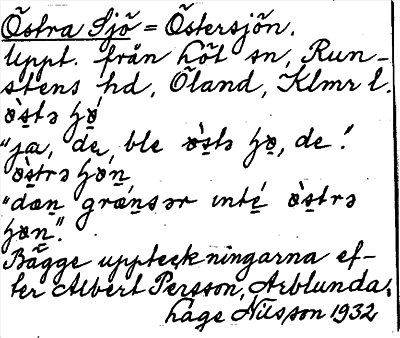 Östra Sjö = Östersjön.
Uppt. från Löt sn, Run-
stens hd, Öland, Klmr l.
ø̀s̱tə hǿ̱
"ja, de, ble ø̀s̱tə hø̱, de."
ø̀s̱trə hø̱ṉ
"dæṉ grǽṉsər ınté̱ ø̀s̱trə
hø̱ṉ".
Bägge uppteckningarna ef-
ter Albert Persson, Arblunda,
Låge Nilsson 1932